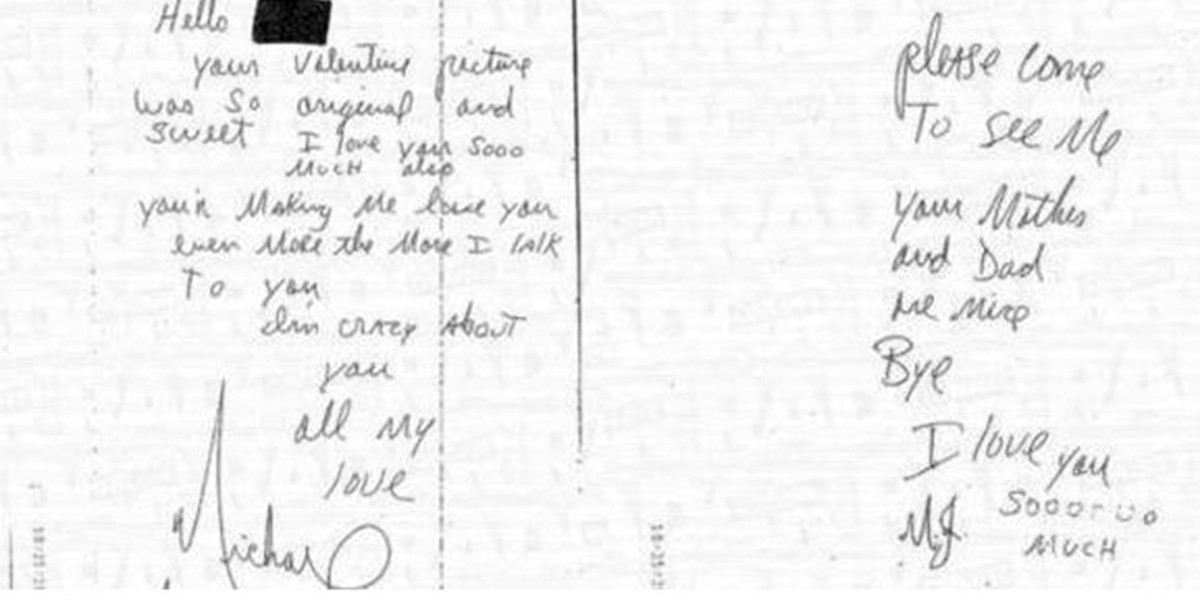 Hello
your valentine picture
was so original and
sweet I love you sooo
MUCH also
your Making Me love you
even More the More I talk
To you
I'm crazy About
you
all my
love
Michael
please come
To see Me
your Mother
and Dad
are nice
Bye
I love you
MJ Soooooo
MUCH